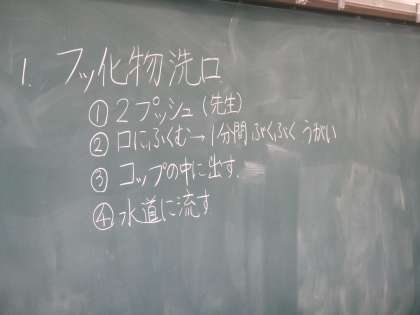 1. フッ化物洗口
① 2プッシュ(先生)
② 口にふくむ→1分間 ぶくぶく うがい
③ コップの中に出す.
④ 水道に流す